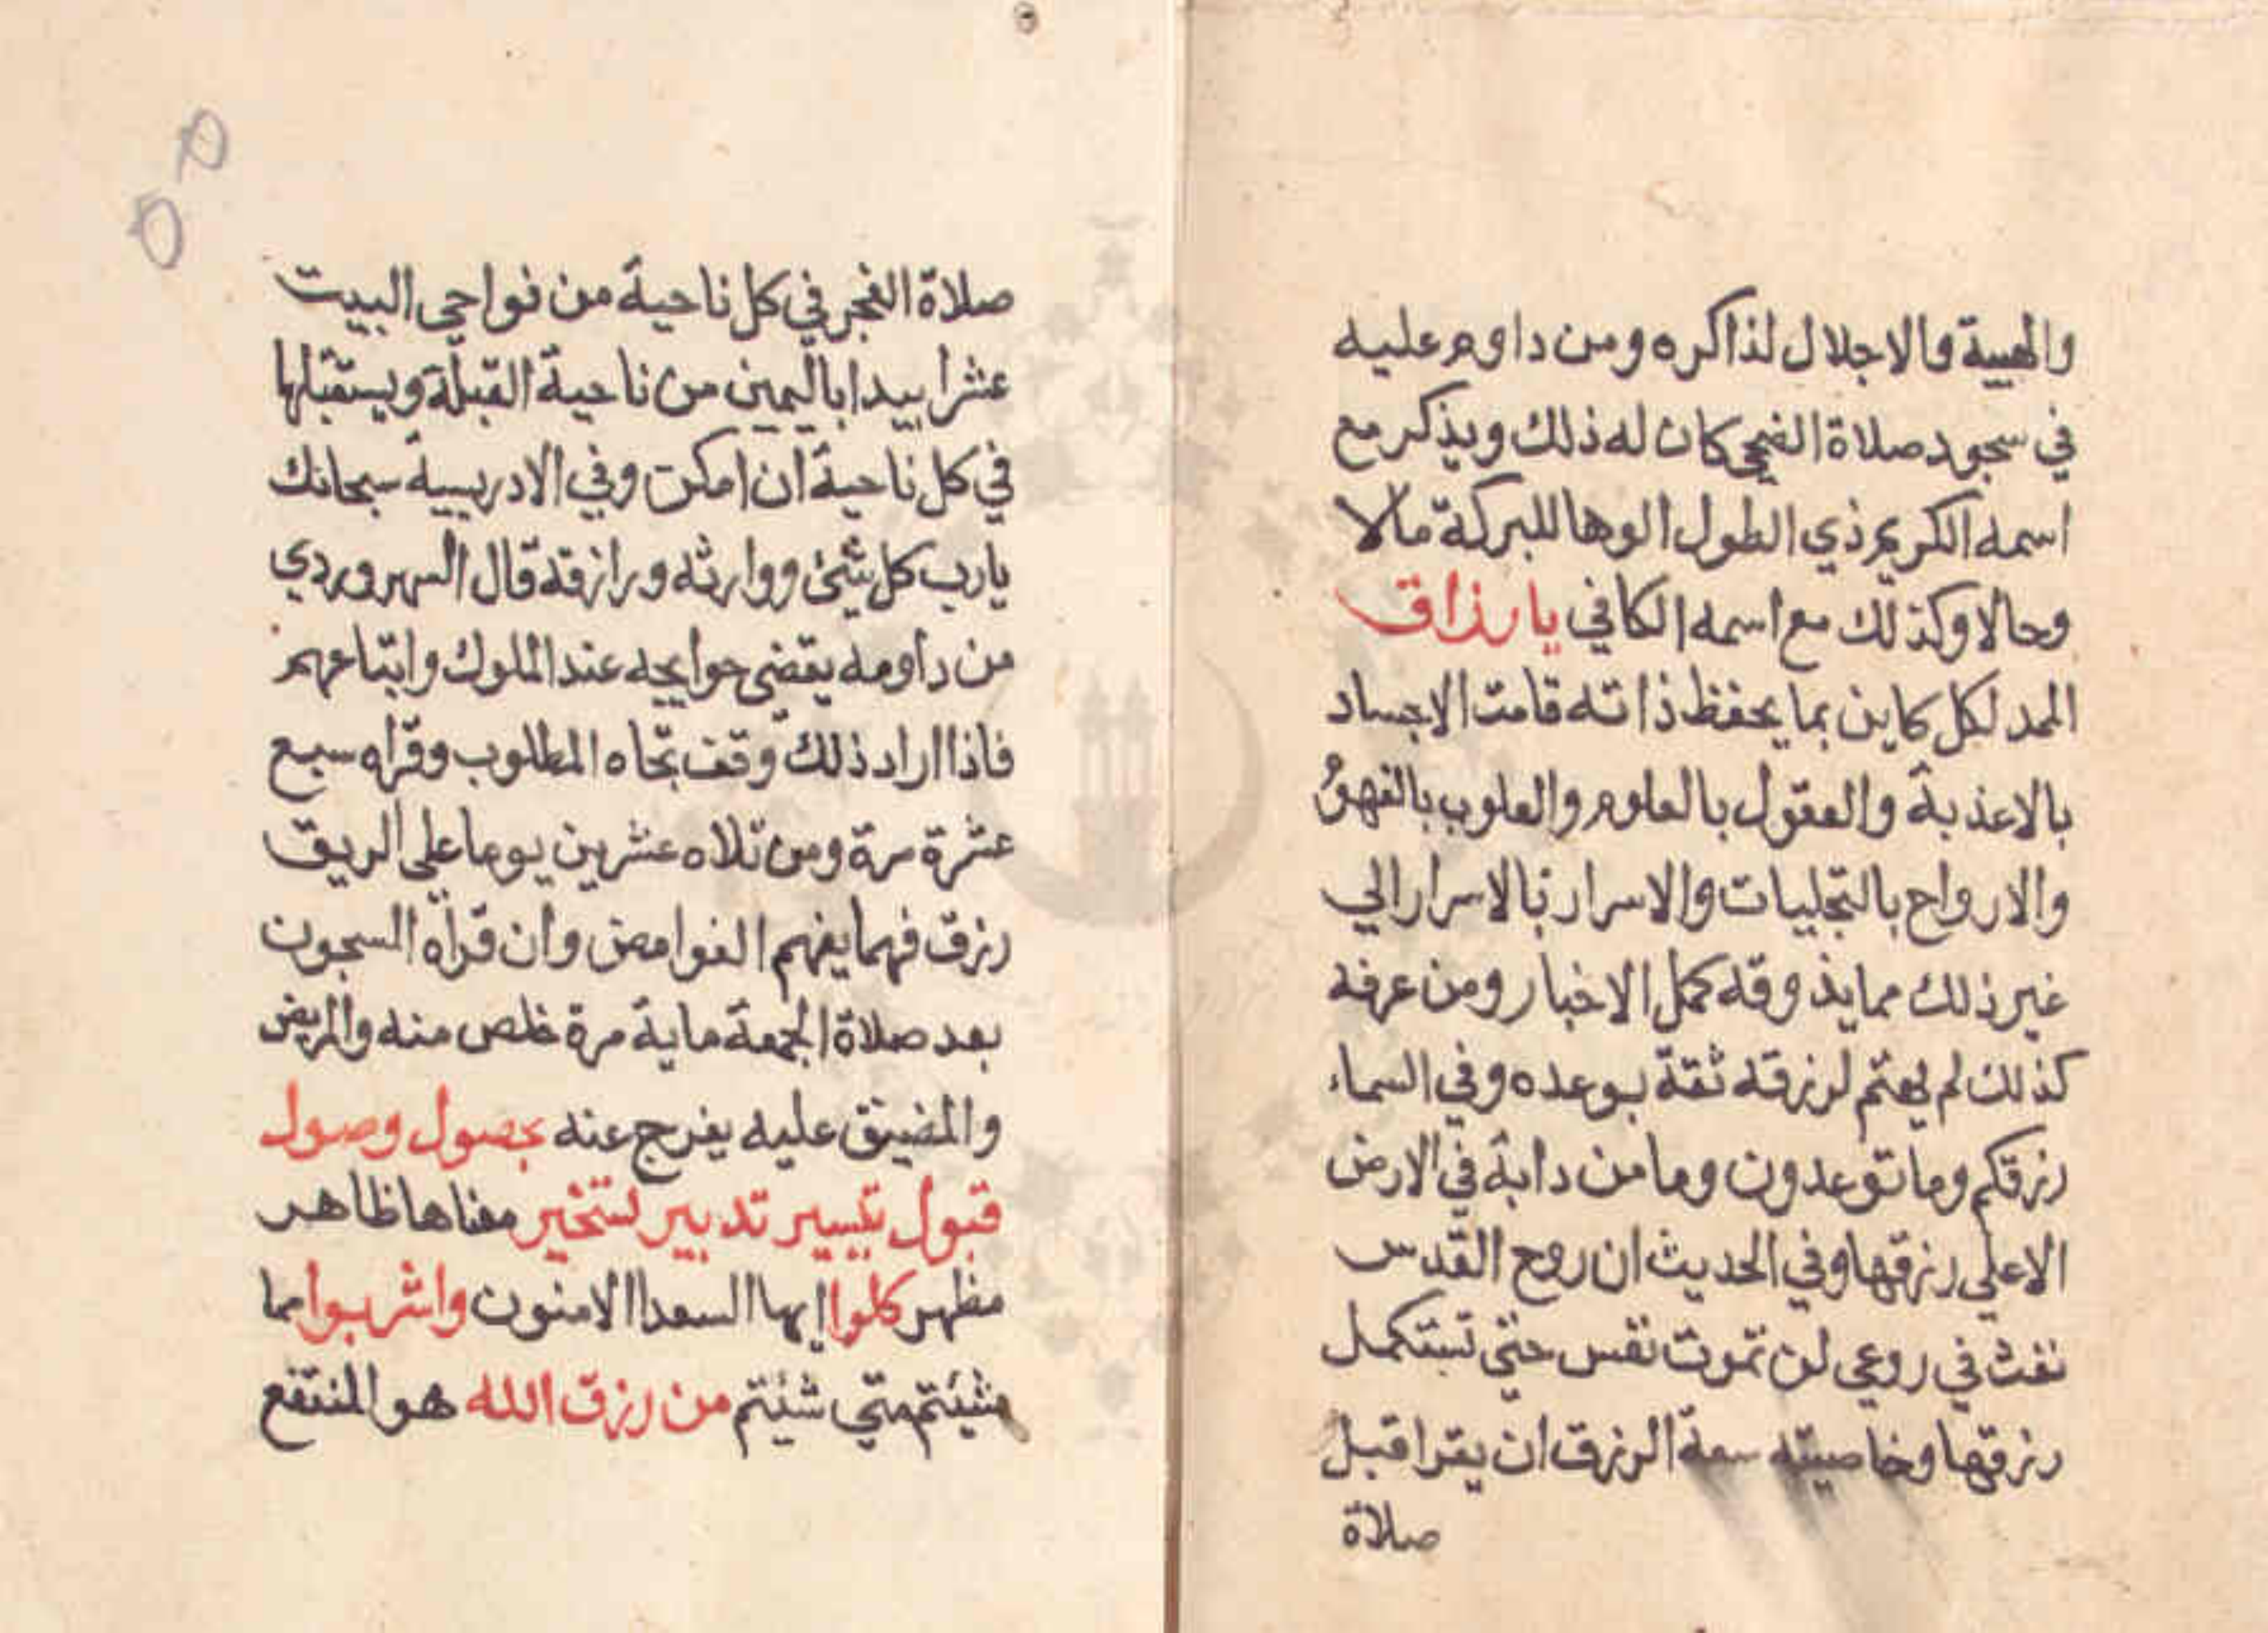 والهيبة والاجلال لذاكره ومن داوم عليه
في سجود صلاة الضحى كان له ذلك ويذكر مع
اسمه الكريم ذي الطول الوها للبركة مالا
وحالا وكذلك مع اسمه الكافي يا رزاق
الممد لكل كاين بما يحفظ ذاته قامت الاجساد
بالاعذية والعقول بالعلوم والعلوب بالفهوم
والارواح بالتجليات والاسرار بالاسرار الي
غير ذلك مما يذوقه كمل الاخيار ومن عرفه
كذلك لم يهتم لرزقه ثقة بوعده وفي السماء
رزقكم وما توعدون وما من دابة في الارض
الاعلي رزقها وفي الحديث ان روح القدس
نفث في روعي لن تموت نفس حتي تستكمل
رزقها وخاصيته سعة الرزق ان يقرا قبل
صلاة
صلاة الفجر في كل ناحية من نواحي البيت
عشرا يبدا باليمين من ناحية القبلة ويستقبلها
في كل ناحية ان امكن وفي الادريسية سبحانك
يا رب كل شئ ووارثه ورازقه قال السهروردي
من داومه يقضي حوايجه عند الملوك واتباعهم
فاذا اراد ذلك وقف تجاه المطلوب وقراه سبع
عشرة مرة ومن تلاه عشرين يوما علي الريق
رزق فهما يفهم الغوامض وان قراه السجون
بعد صلاة الجمعة ماية مرة خلص منه والمريض
والمضيق عليه يفرج عنه بحصول وصول
قبول تيسير تدبير تسخير معناها ظاهر
مظهر كلوا ايها السعدا الامنون واشربوا مما
شيئتم متي شئتم من رزق الله هو المنتفع